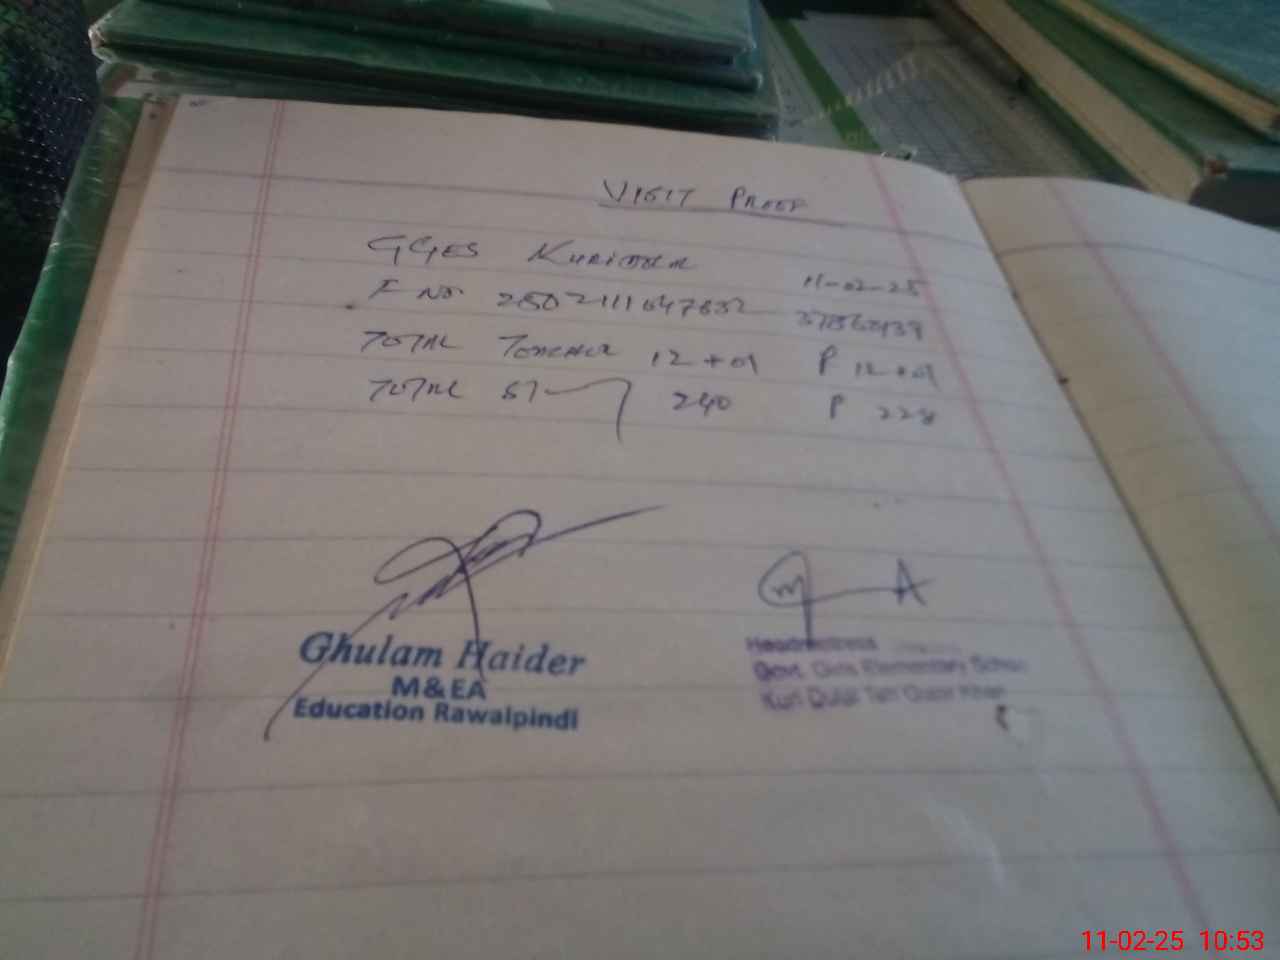 VISIT PROOF
GGES
11-02-25
F No. 2502111047632
TOTAL Teacher 12+01 P 12+01
TOTAL ST 240 P 228
Ghulam Haider
M&EA
Education Rawalpindi
Headmistress
Govt. Girls Elementary School
Kuri Dulal Teh Gujar Khan
11-02-25 10:53